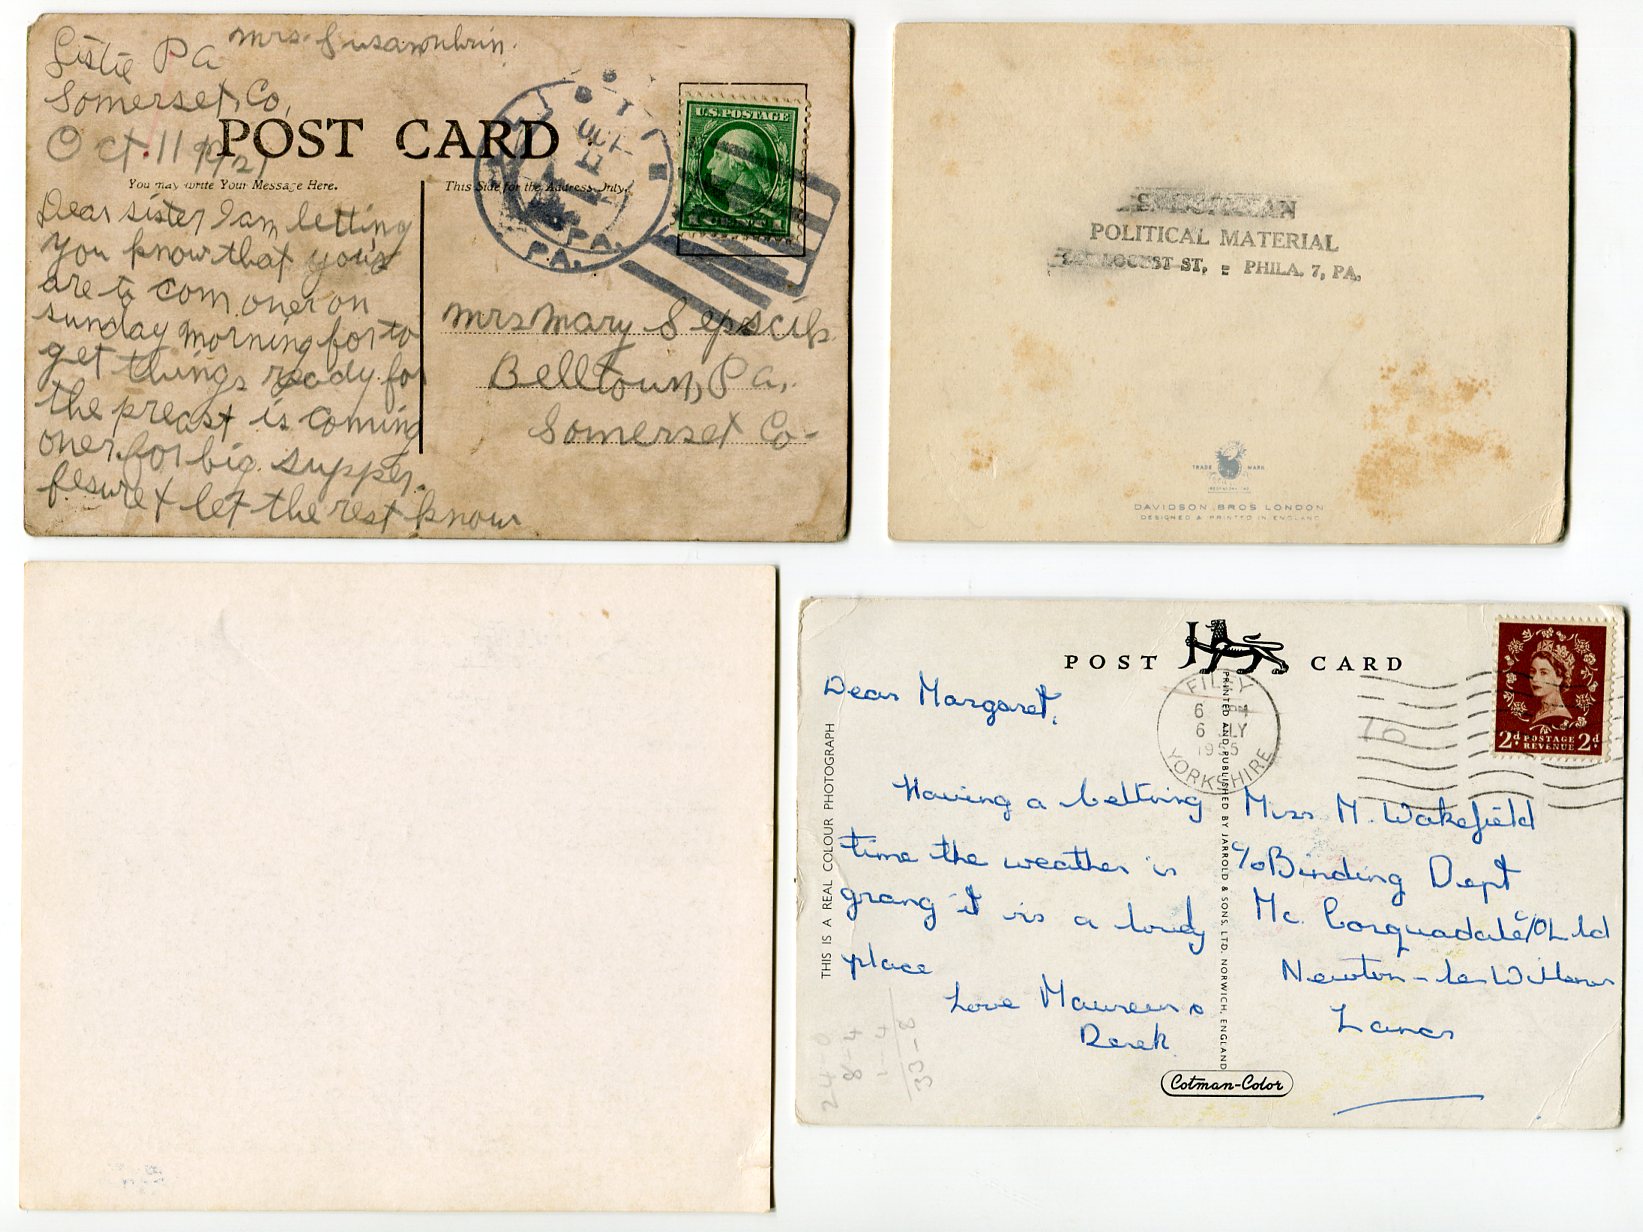 Listie Pa
Somerset, Co,
Oct. 11 1921
Mrs.
POST CARD
You may write Your Message Here.
This Side for the Address Only.
Dear sister I am letting
you know that you's
are to com oner on
sunday morning for to
get things ready for
the preast is coming
oner. for big supper.
besure & let the rest know
U.S. POSTAGE
OCT
11
PA.
Mrs Mary
Belltown, Pa.,
Somerset Co-
POLITICAL MATERIAL
LOCUST ST, - PHILA. 7, PA.
TRADE MARK
DAVIDSON BROS LONDON
DESIGNED & PRINTED IN ENGLAND
POST CARD
FILEY
6 PM
6 JLY
1955
YORKSHIRE
2d POSTAGE REVENUE 2d
Dear Margaret,
Having a beltring
time the weather is
grang it is a lovely
place
Love Maureen &
Derek
Miss M. Wakefield
c/o Binding Dept
Mc. Corquadale c/o Ltd
Newton-le Willows
Lancs
THIS IS A REAL COLOUR PHOTOGRAPH
PRINTED AND PUBLISHED BY JARROLD & SONS, LTD. NORWICH, ENGLAND
Cotman-Color
24 0
8-4
1-4
33-8